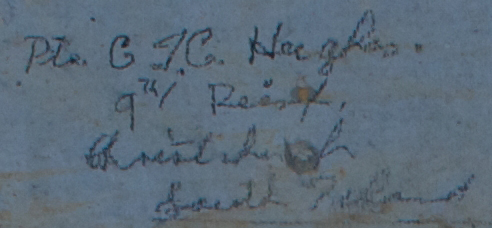 Pte. G T C. Hughes.
9TH Reinf.
Christchurch
South Island